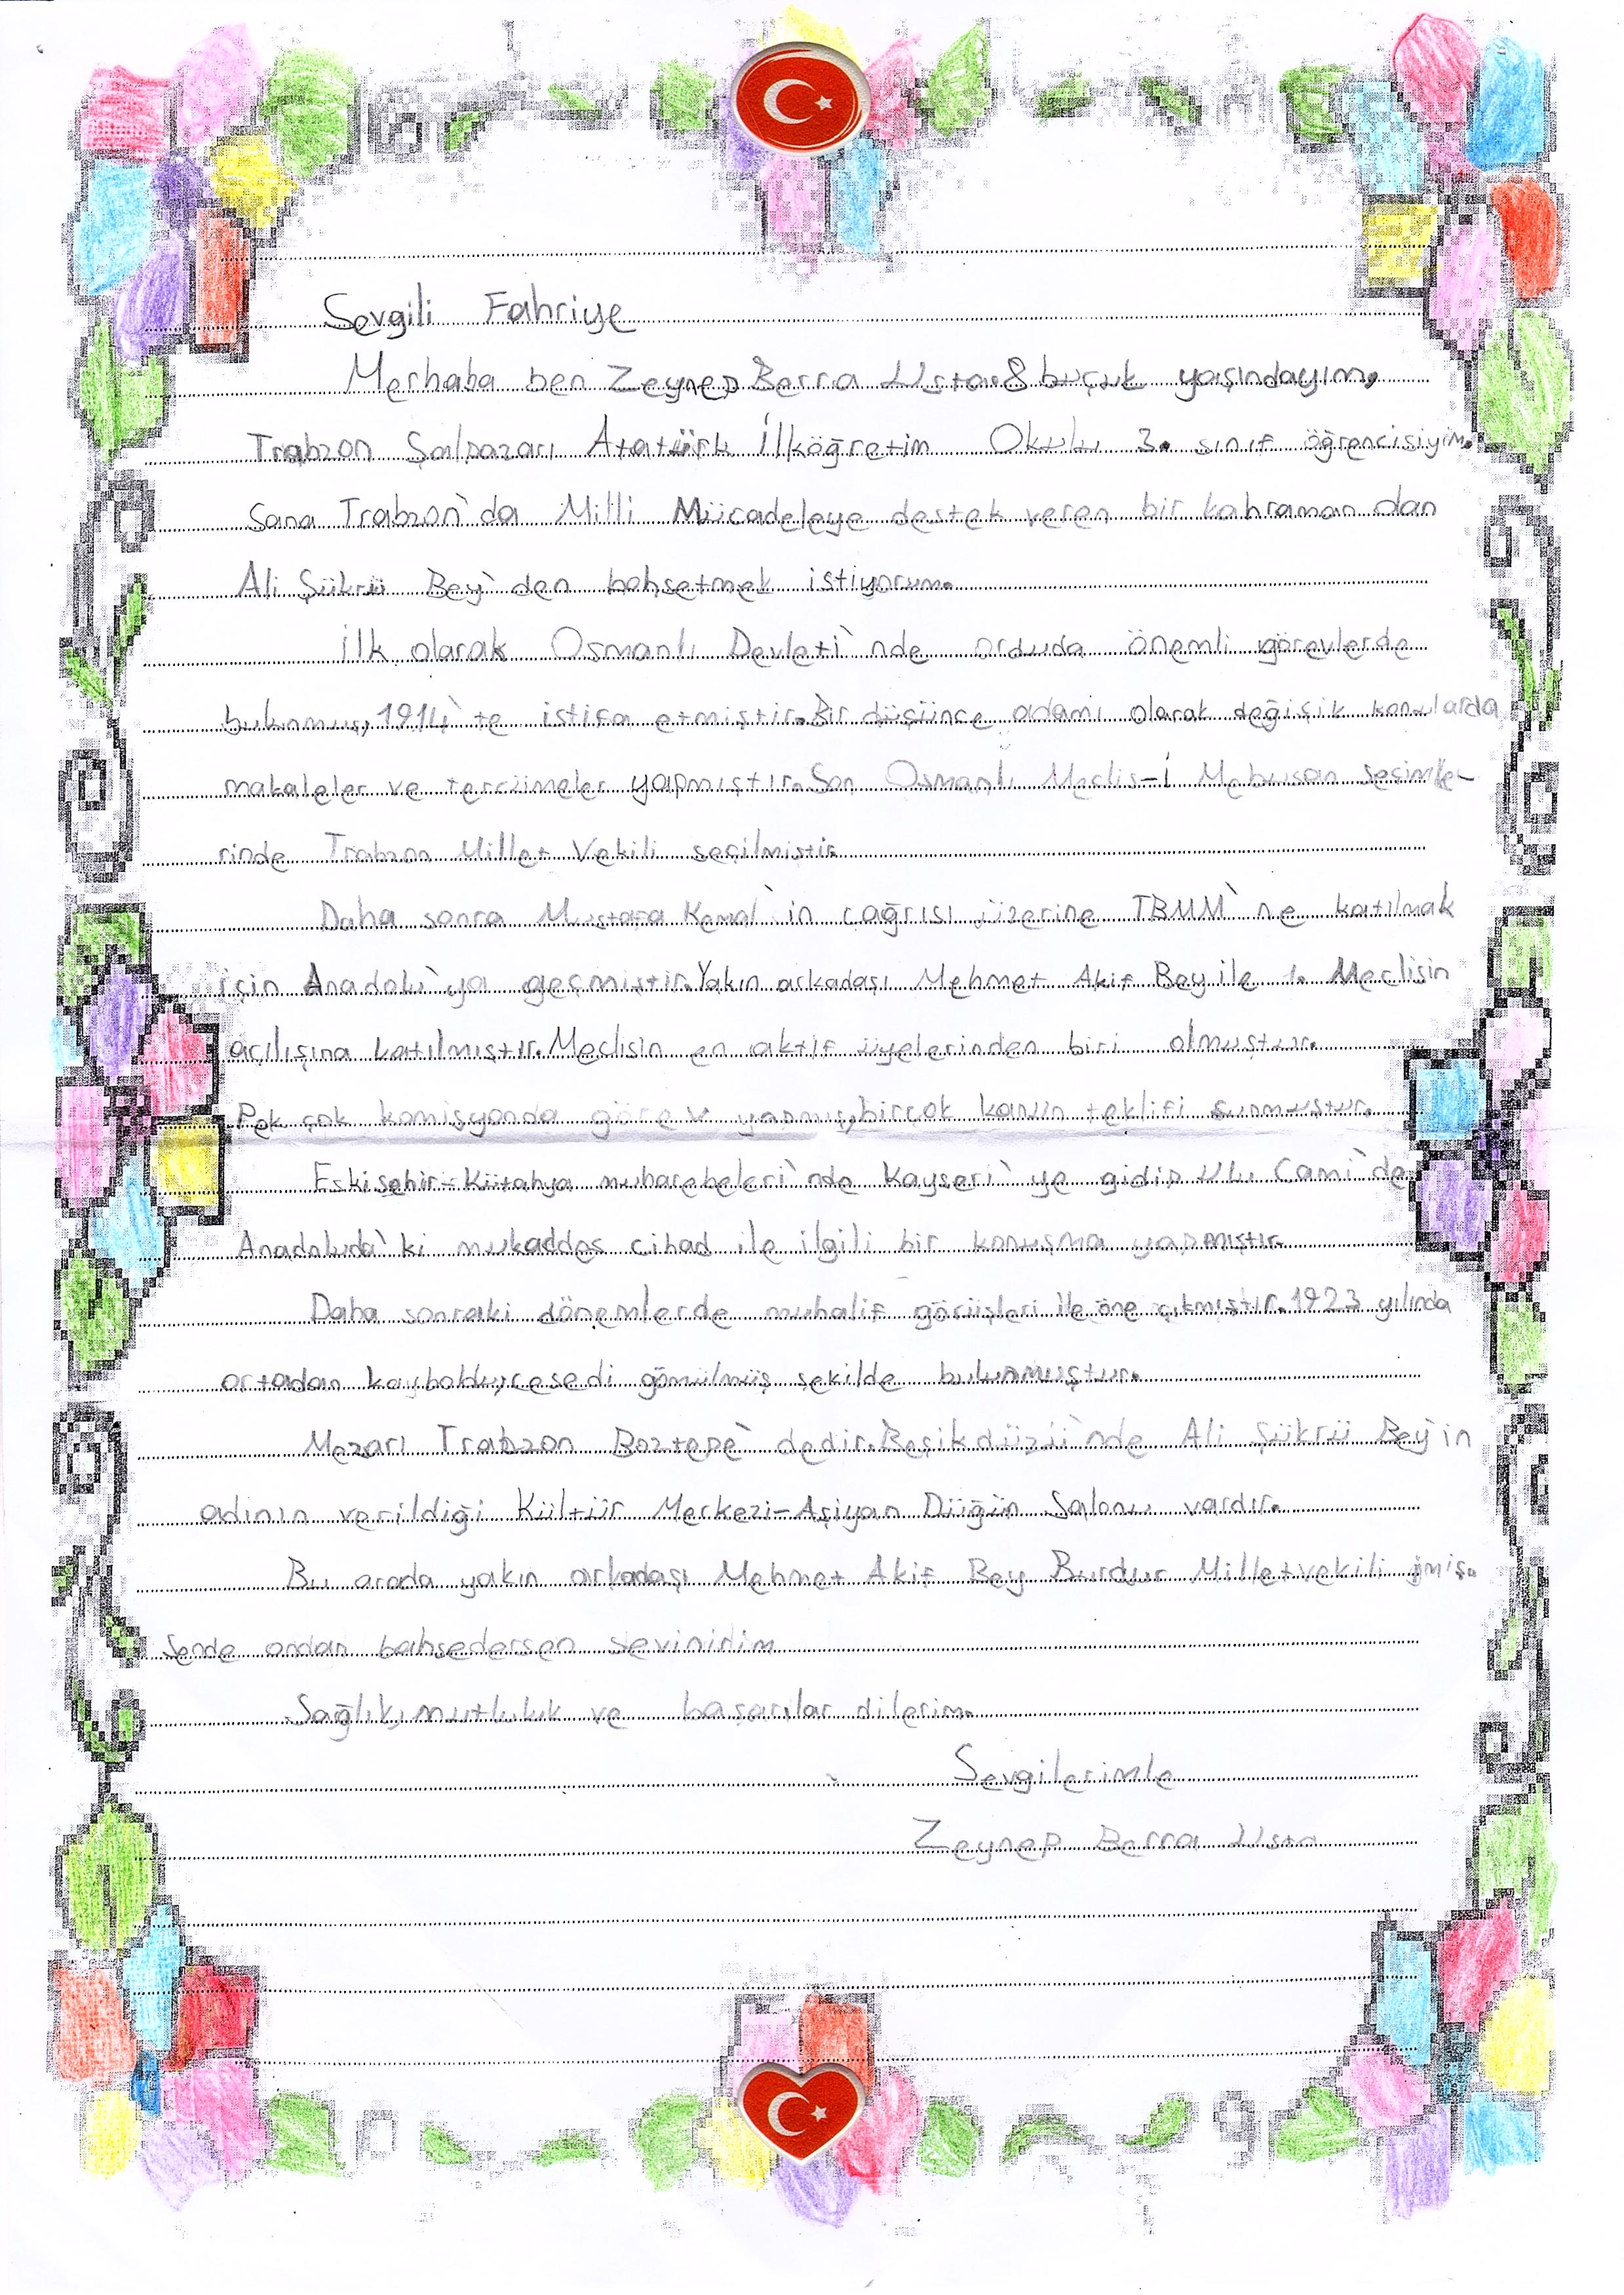 Sevgili Fahriye
Merhaba ben Zeynep Berra Usta.8 buçuk yaşındayım.
Trabzon Şalpazarı Atatürk İlköğretim Okulu 3. sınıf öğrencisiyim.
Sana Trabzon'da Milli Mücadeleye destek veren bir kahraman dan
Ali Şükrü Bey'den bahsetmek istiyorum.
İlk olarak Osmanlı Devleti'nde orduda önemli görevlerde
bulunmuş, 1914'te istifa etmiştir.Bir düşünce adamı olarak değişik konularda
makaleler ve tercümeler yapmıştır.Son Osmanlı Meclis-i Mebusan seçimle-
rinde Trabzon Millet Vekili seçilmiştir.
Daha sonra Mustafa Kemal'in çağrısı üzerine TBMM'ne katılmak
için Anadolu'ya geçmiştir.Yakın arkadaşı Mehmet Akif Bey ile 1. Meclisin
açılışına katılmıştır.Meclisin en aktif üyelerinden biri olmuştur.
Pek çok komisyonda görev yapmış,birçok kanun teklifi sunmuştur.
Eskişehir-Kütahya muharebeleri'nde Kayseri'ye gidip Ulu Cami'de
Anadoluda'ki mukaddes cihad ile ilgili bir konuşma yapmıştır.
Daha sonraki dönemlerde muhalif görüşleri ile öne çıkmıştır.1923 yılında
ortadan kayboldu,cesedi gömülmüş şekilde bulunmuştur.
Mezarı Trabzon Boztepe'dedir.Beşikdüzü'nde Ali Şükrü Bey'in
adının verildiği Kültür Merkezi-Aşiyan Düğün Salonu vardır.
Bu arada yakın arkadaşı Mehmet Akif Bey Burdur Milletvekili imiş.
Sende ondan bahsedersen sevinirim
Sağlık,mutluluk ve başarılar dilerim.
Sevgilerimle
Zeynep Berra Usta